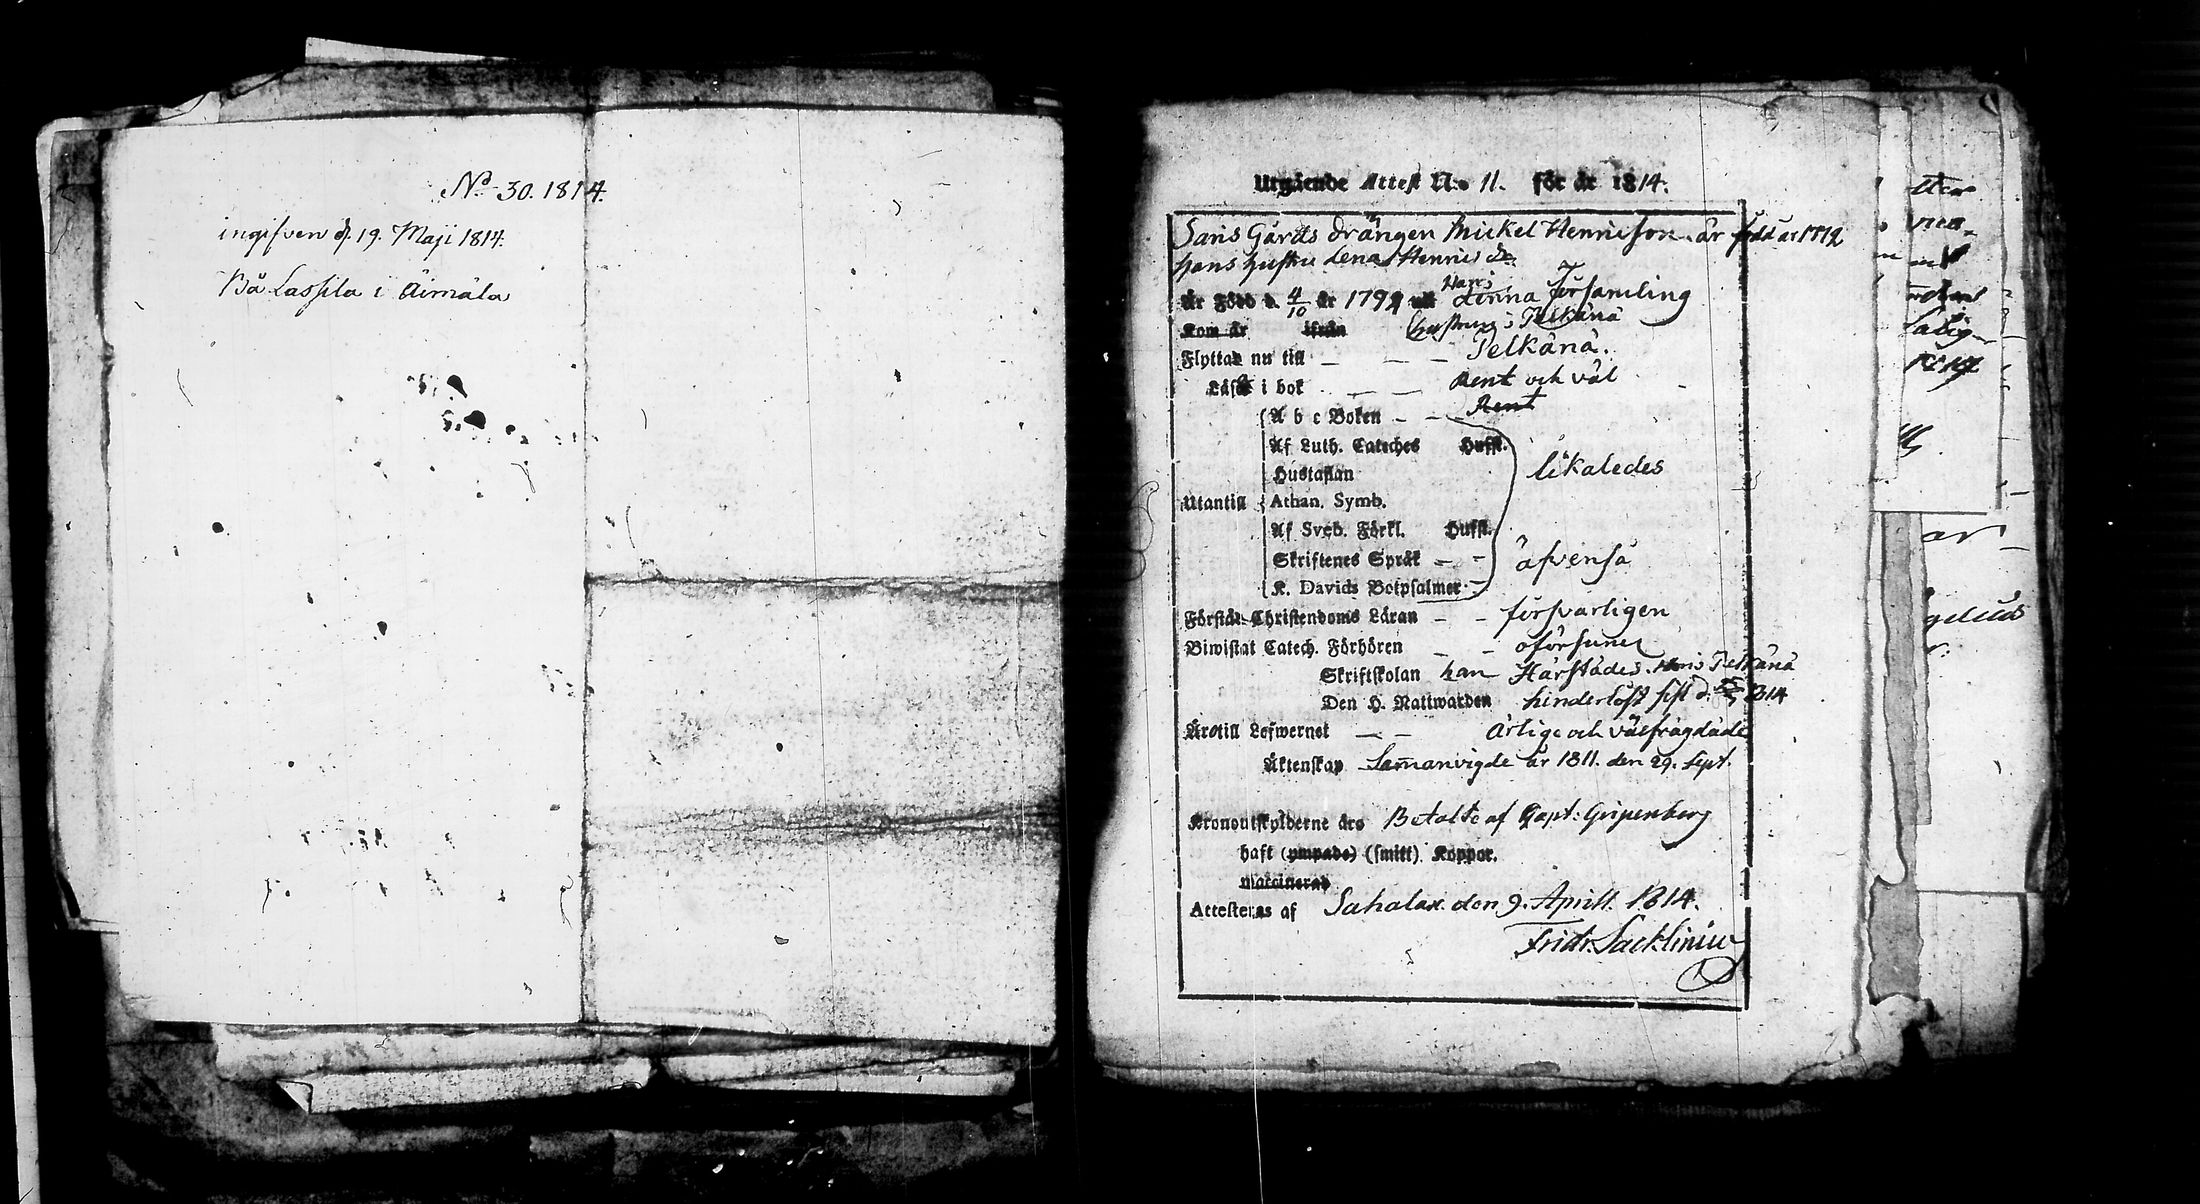 No 30. 1814.
ingifven d. 19. Maji 1814.
Bå Lassila i Äimälä
Utgående Attest N:o 11. för år 1814.
Saris Gårds drängen Mickel Hennisson är född år
hans hustru Lena Hennis dr
Är Född d. 4/10 år 1792 uti Hans denna Församling
Kom år ifrån hustruns i Pelkänä
Flyttar nu till — — — Pelkäna.
Läser i bok — — Rent och väl
A b c Boken — — Rent
Af Luth. Cateches Hufst.
Hustaflan likaledes
Utantill Athan. Symb.
Af Sveb. Förkl. Hufst.
Skriftenes Språk — — äfvenså
K. Davids Botpsalmer
Förstår Christendoms Läran — — försvarligen
Biwistat Catech. Förhören — — oförsumel
Skriftskolan han Härstädes. Hon i Pelkänä
Den H. Nattwarden hinderlöst sist d. 1814
Äro till Lefwernet — — Ärlige och välfrägdade
Äktenskap Sammanvigde år 1811. den 29. Sept.
Kronoutskylderne äro Betalte af Capt: Gripenberg
haft (ympade) (smitt) Koppor.
vaccinerad
Attesteras af Sahalax. den 9. Aprill. 1814.
Fridr. Sacklinius